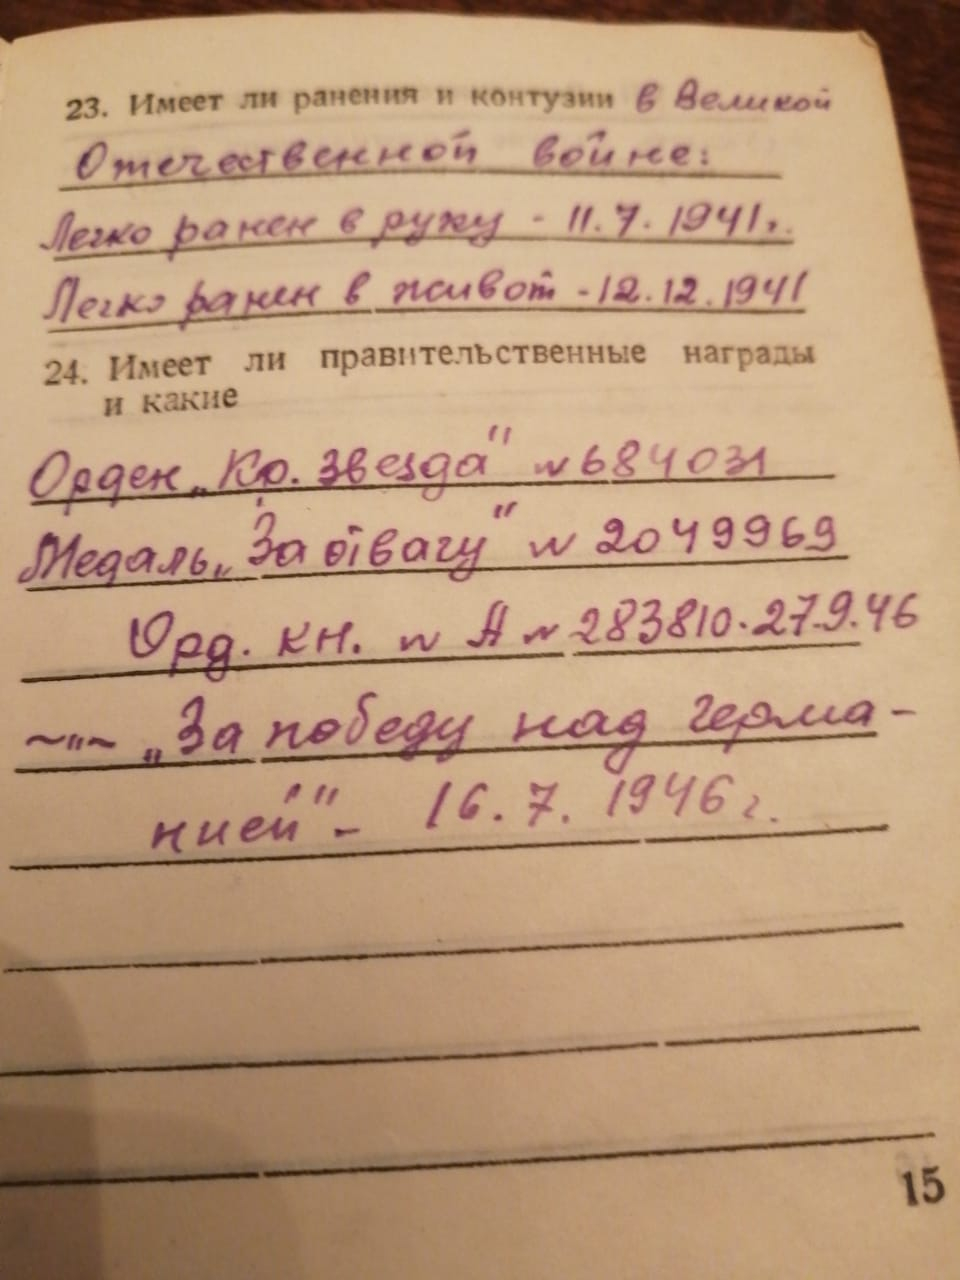 23. Имеет ли ранения и контузии в Великой
Отечественной войне:
Легко ранен в руку - 11.7.1941г.
Легко ранен в живот - 12.12.1941
24. Имеет ли правительственные награды
и какие
Орден „Кр. Звезда" № 684031
Медаль „За отвагу" № 2049969
Орд. кн. № А № 283810. 27.9.46
~"~ „За победу над Герма-
нией" - 16.7.1946г.
15